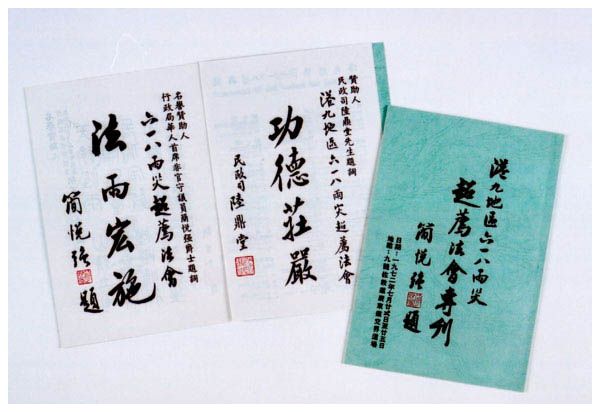 港九地區六一八雨災
超薦法會專刊
簡悅強題
日期：一九七二年七月廿弍日至廿五日
地點：九龍佐敦道廣東道交界道場
贊助人
民政司陸鼎堂先生題詞
港九地區六一八雨災超薦法會
功德莊嚴
民政司陸鼎堂
名譽贊助人
行政局華人首席非官守議員簡悅强爵士題詞
六一八雨災超薦法會
法雨宏施
簡悅強題